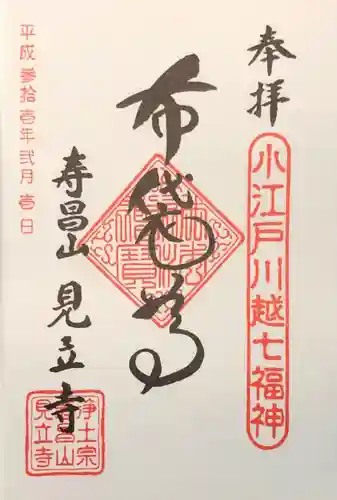 奉拝
小江戸川越七福神
布袋尊
寿昌山 見立寺
平成参拾壱年弐月壱日
浄土宗
寿昌山
見立寺